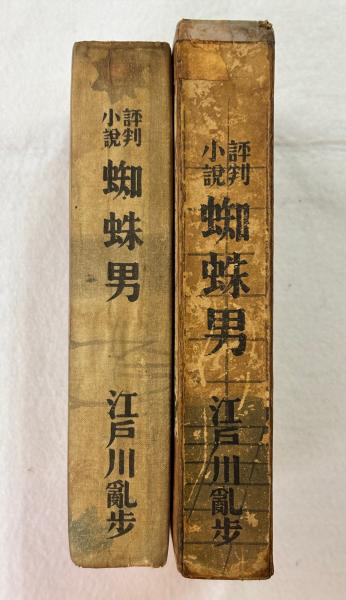 評判
小說
蜘蛛男
江戸川亂歩
評判
小說
蜘蛛男
江戸川亂歩